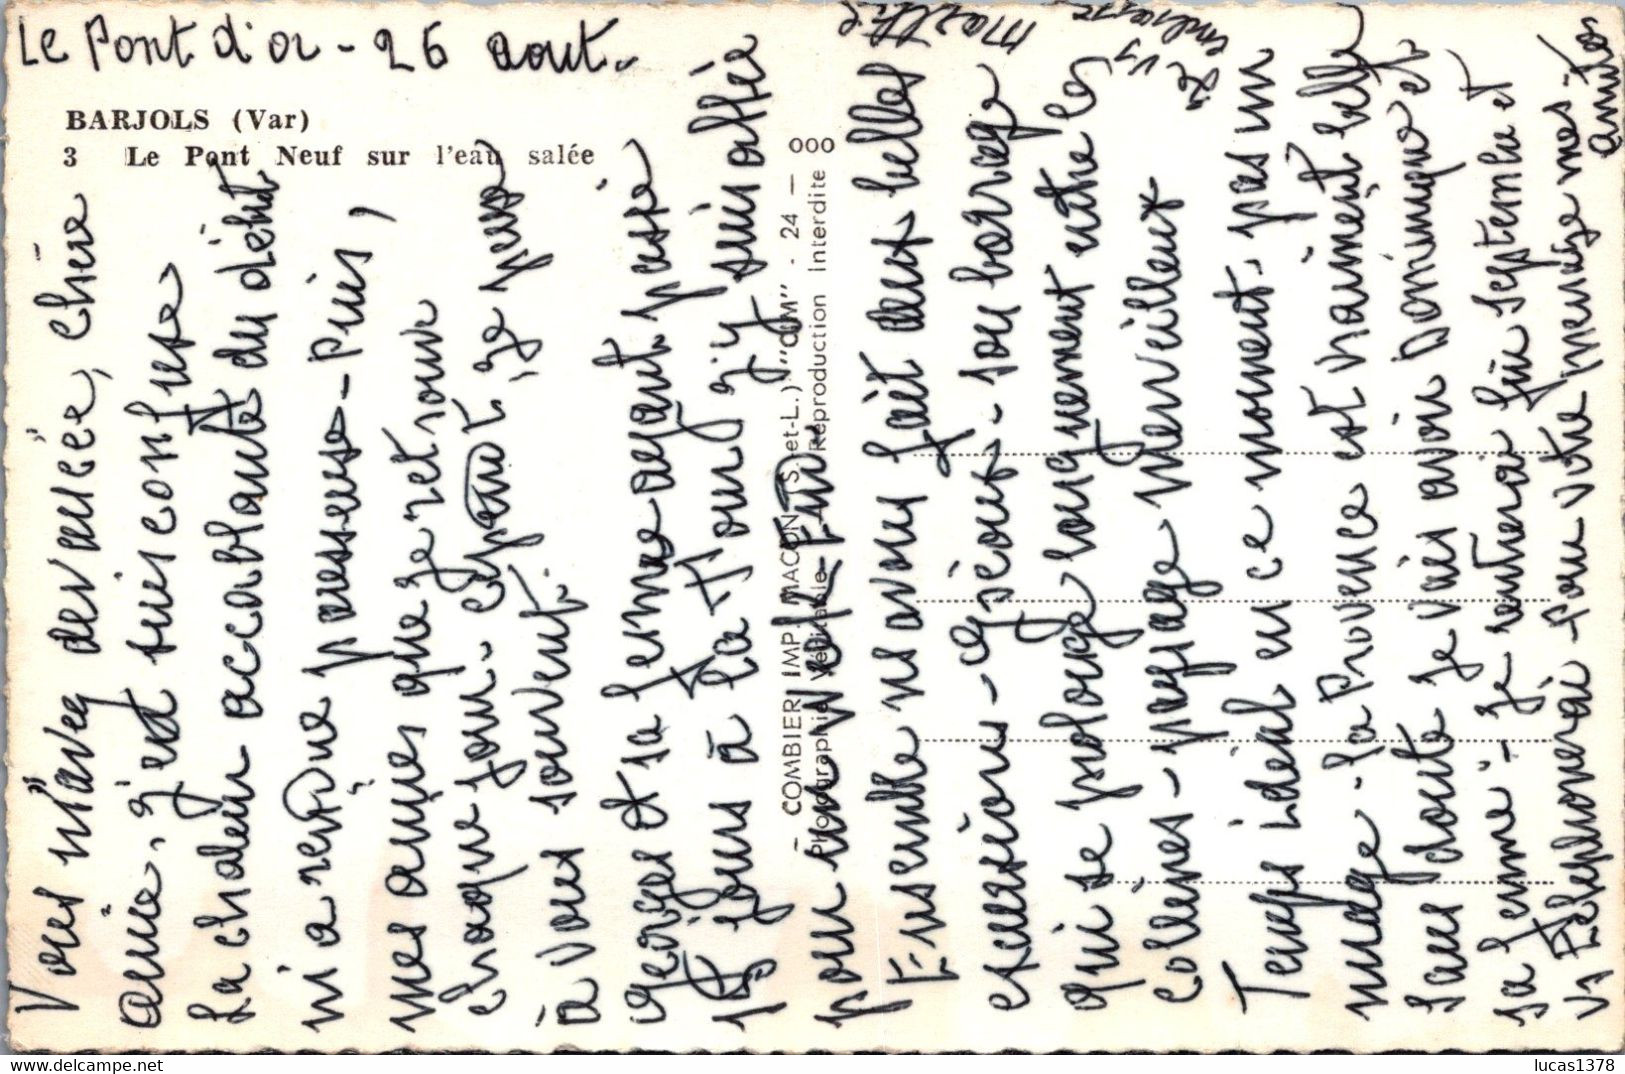 Le Pont d'or - 26 aout.
BARJOLS (Var)
3 Le Pont Neuf sur l'eau salée
Vous m'avez devancée, chère
amie, j'en suis confuse
La chaleur accablante du début
m'a rendue paresseuse - Puis,
mes amies que je retrouve
chaque jour. Cependant, je pense
à vous souvent.
Georges et sa femme ayant passé
15 jours à la T- j'y suis allée
pour une Week-End.
Ensemble ns avons fait deux belles
excursions - Gréoux - son barrage
qui se prolonge longuement entre les
collines - paysage merveilleux
Temps idéal en ce moment. pas un
nuage - la Provence est vraiment belle
Sans doute je vais avoir Dominique et
sa femme - je rentrerai fin septembre et
vs téléphonerai - Pour votre ménage mes
amitiés
Je vs embrasse
COMBIER IMP. MACON (S.-et-L.) "CIM" - 24 -
Photographie Véritable - Reproduction Interdite
000
lucas1378